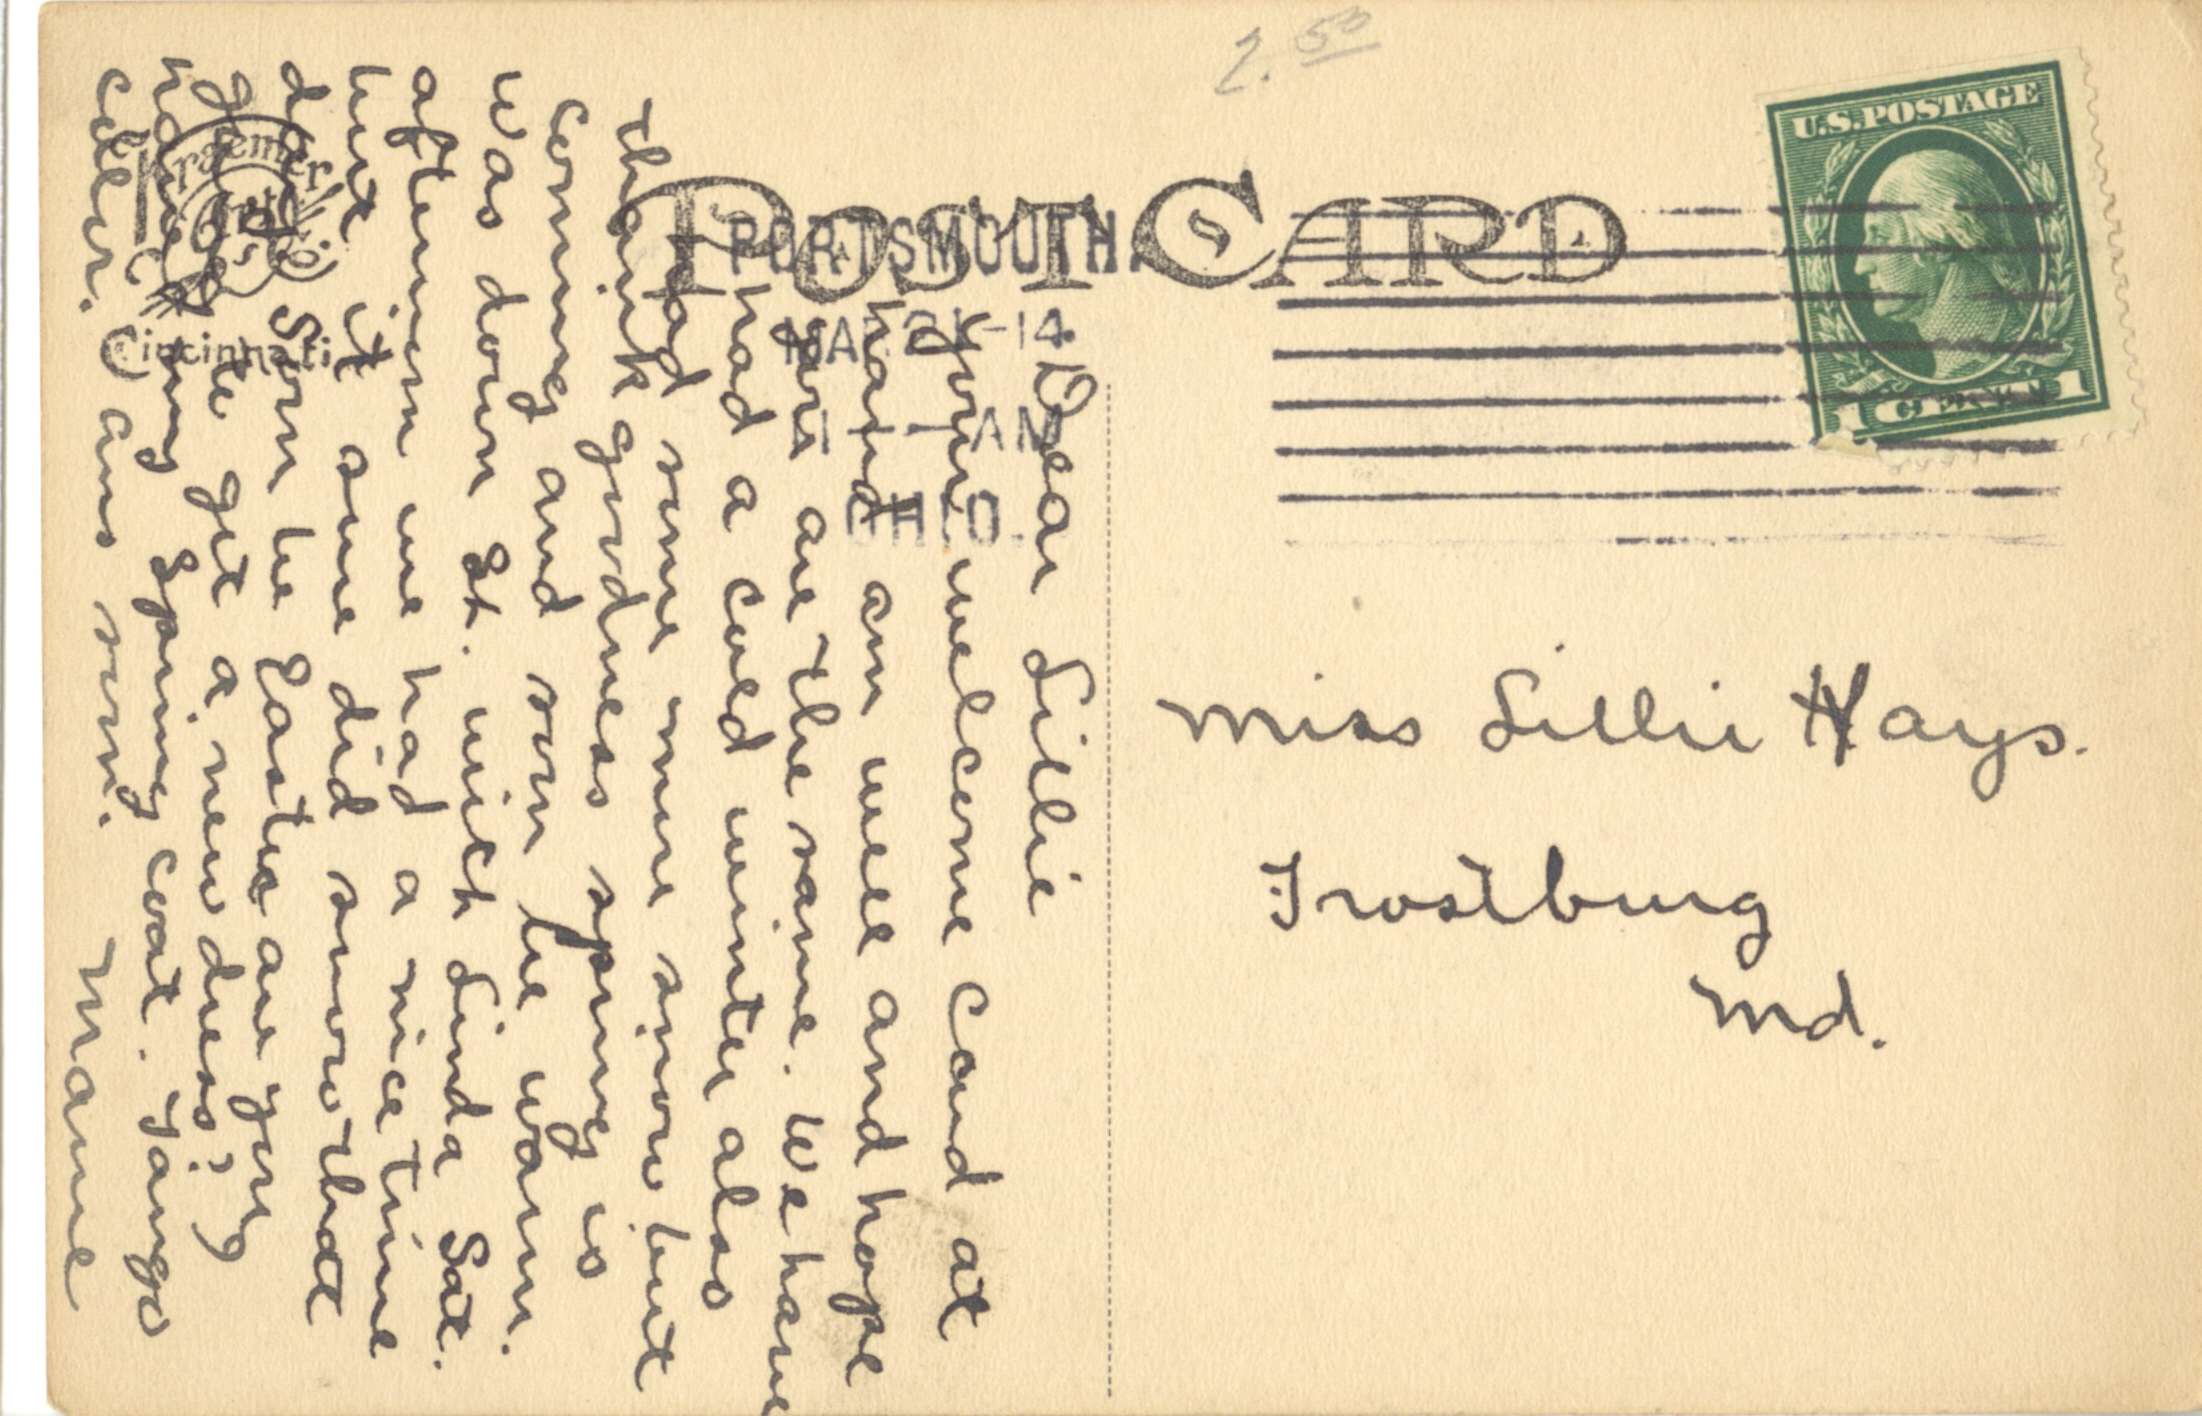 2.50
POST CARD
U.S. POSTAGE
1 CENTS 1
PORTSMOUTH
-14
AM
OHIO.
Kraemer
Art
Co
Cincinnati
Miss Lillie Hays.
Frostburg
Md.
Dear Lillie
Your welcome card at
hand am well and hope
you are the same. We have
had a cold winter also
had some more snow but
thank goodness spring is
coming and soon be warm.
was down St. with Linda Sat.
afternoon we had a nice time
but it sure did snow that
day. Soon be Easter are you
going to get a new dress? I
have my spring coat. Tango
color. ans soon. Mame